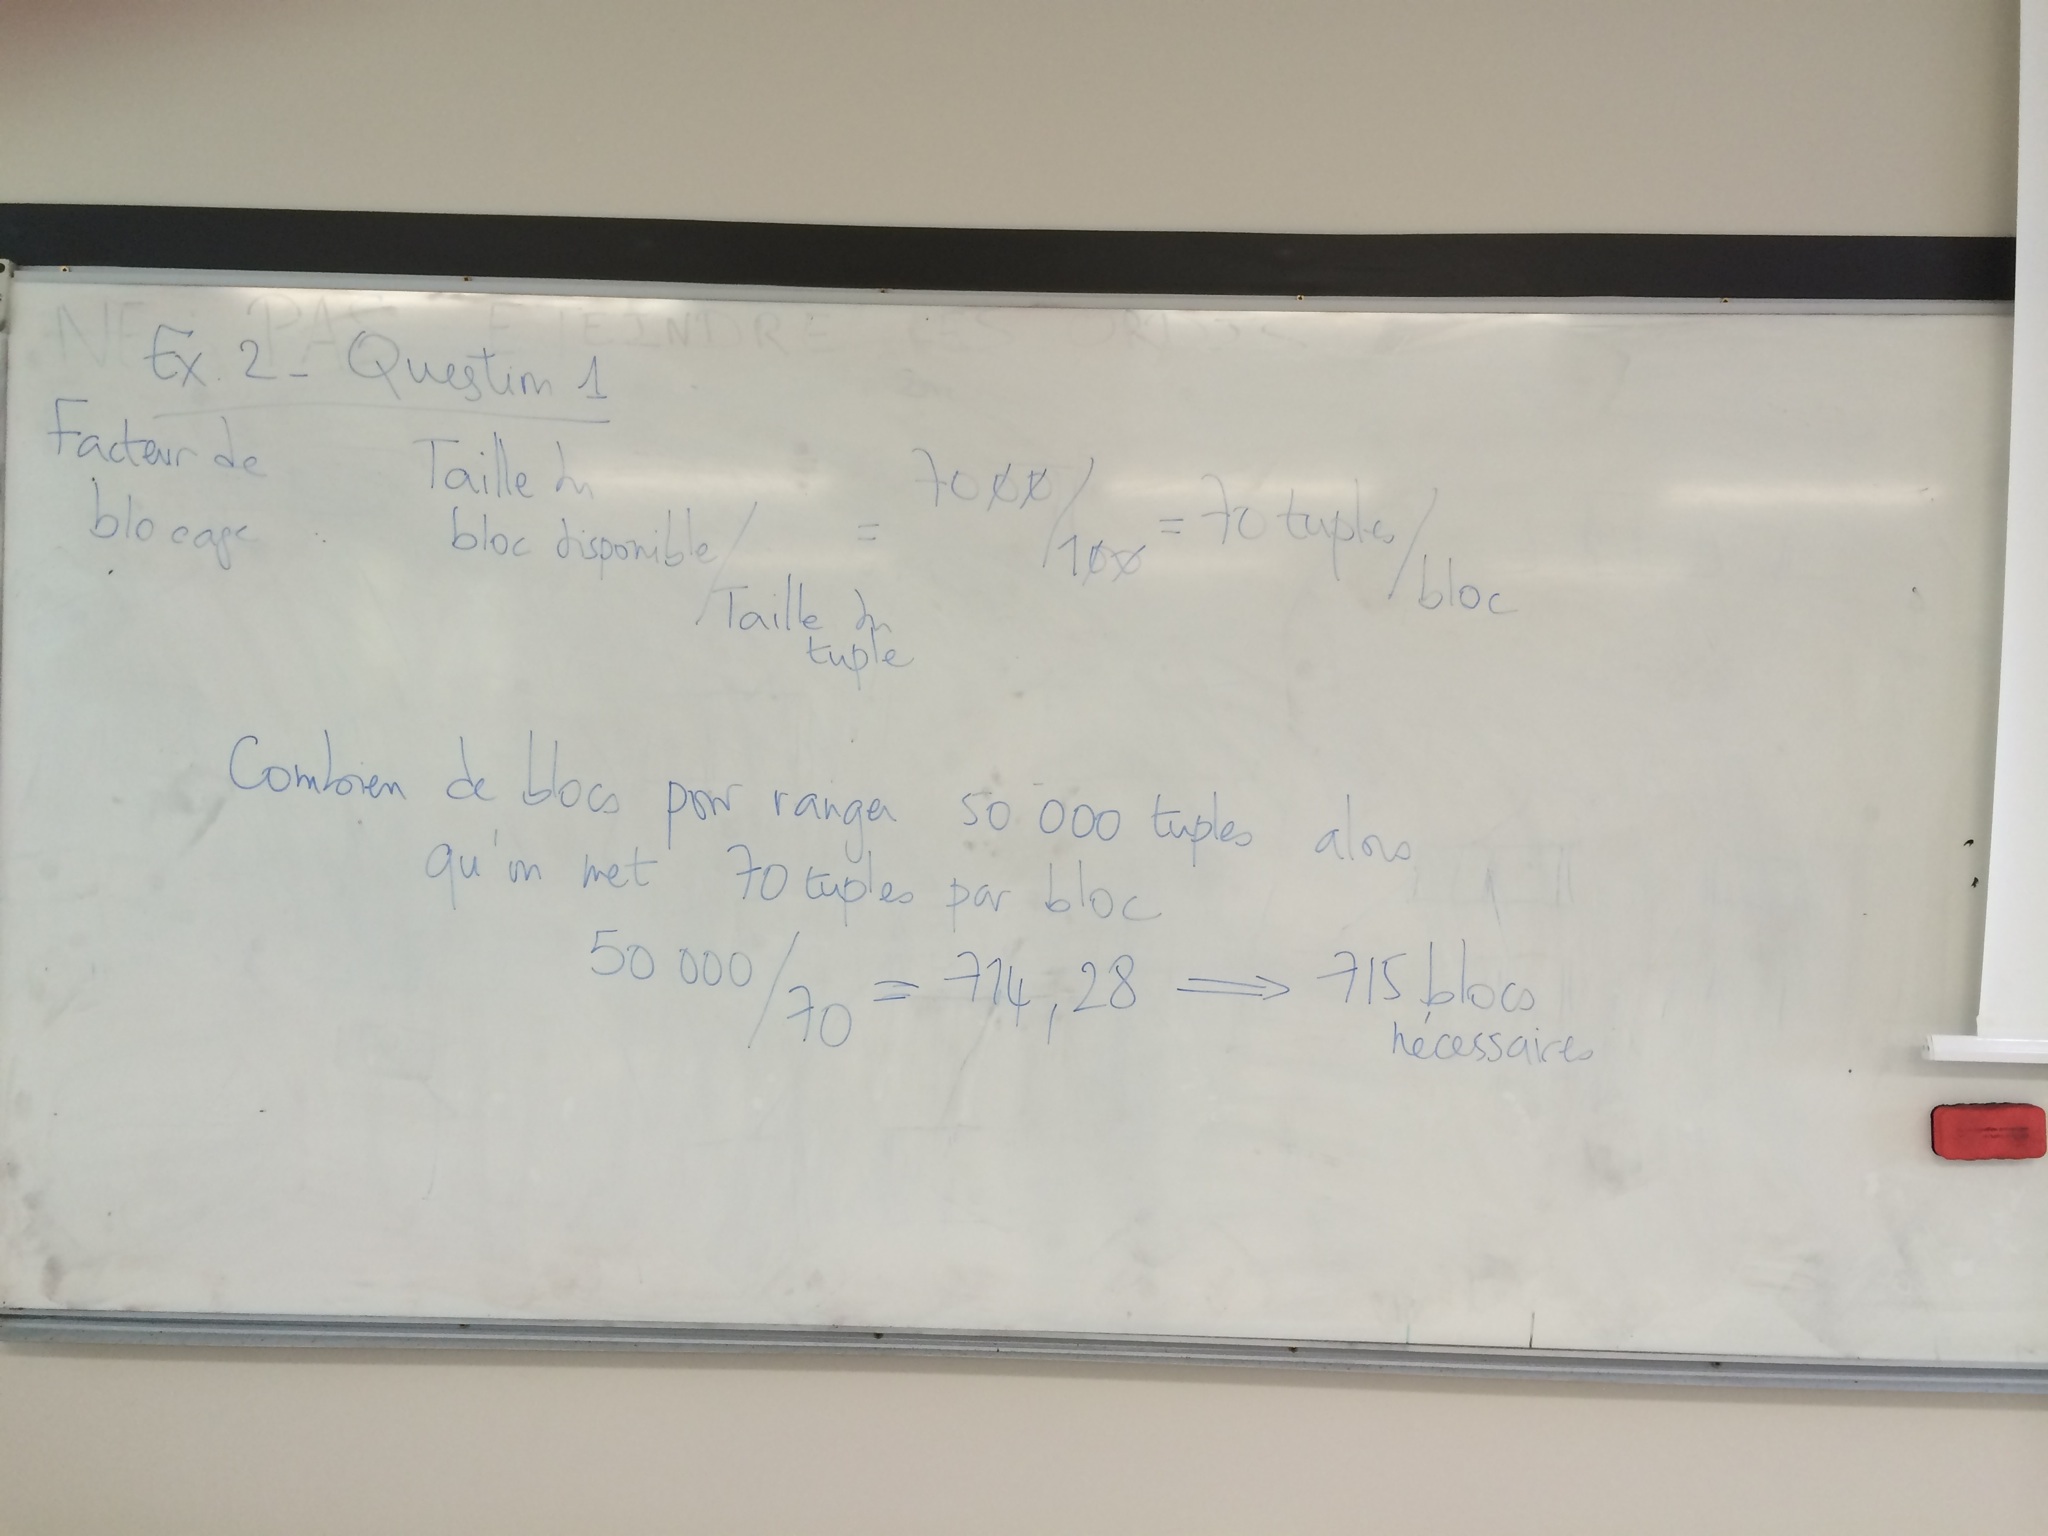 NE PAS ETEINDRE LES
Ex. 2 - Question 1
Facteur de blocage : Taille du bloc disponible / Taille du tuple = 7000 / 100 = 70 tuples / bloc
Combien de blocs pour ranger 50 000 tuples alors
qu'on met 70 tuples par bloc
50 000 / 70 = 714,28 ⟹ 715 blocs
nécessaires